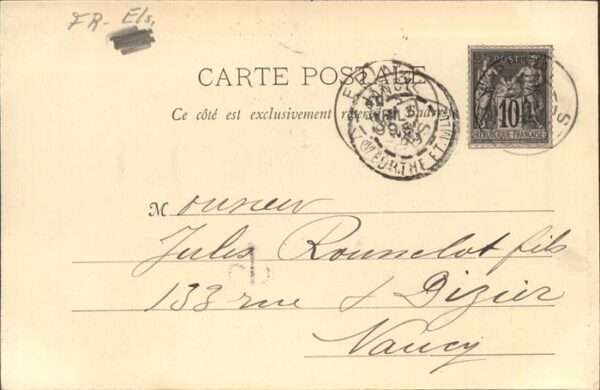 FR- Els.
CARTE POSTALE
Ce côté est exclusivement
10
RÉPUBLIQUE FRANÇAISE
MEURTHE ET M
Monsieur
Jules Rousselot fils
133 rue St Dizier
Nancy